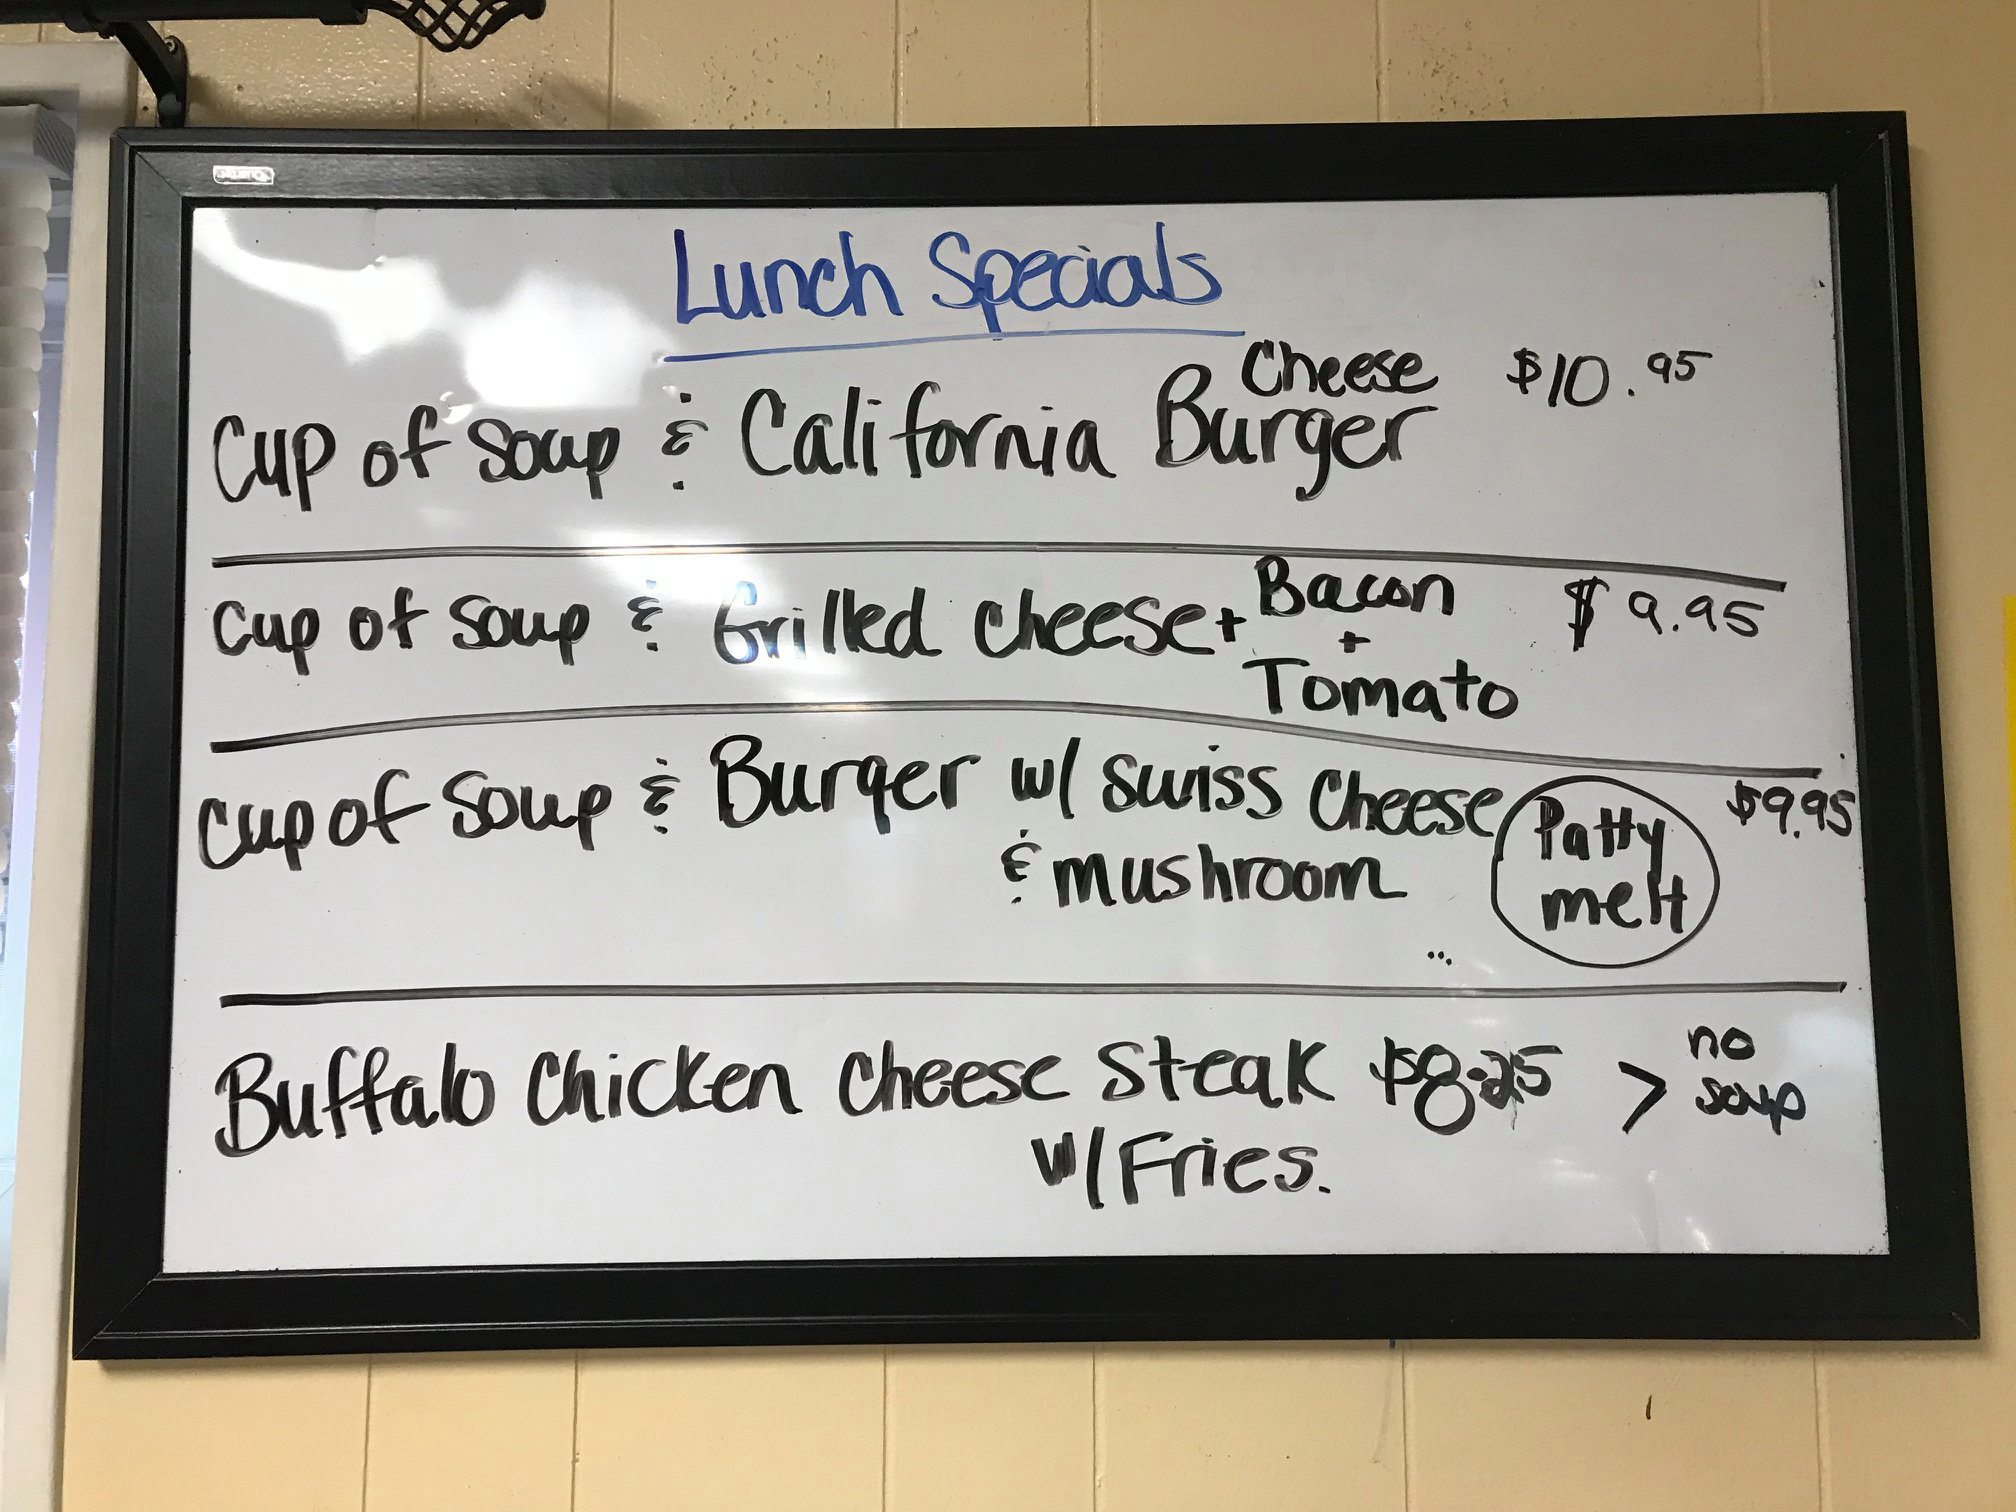 Lunch Specials
Cup of Soup & California Burger Cheese $10.95
Cup of Soup & Grilled Cheese + Bacon + Tomato $9.95
Cup of Soup & Burger w/ Swiss Cheese Patty melt $9.95
& mushroom
Buffalo Chicken Cheese Steak $8.25 > no soup
w/ Fries.